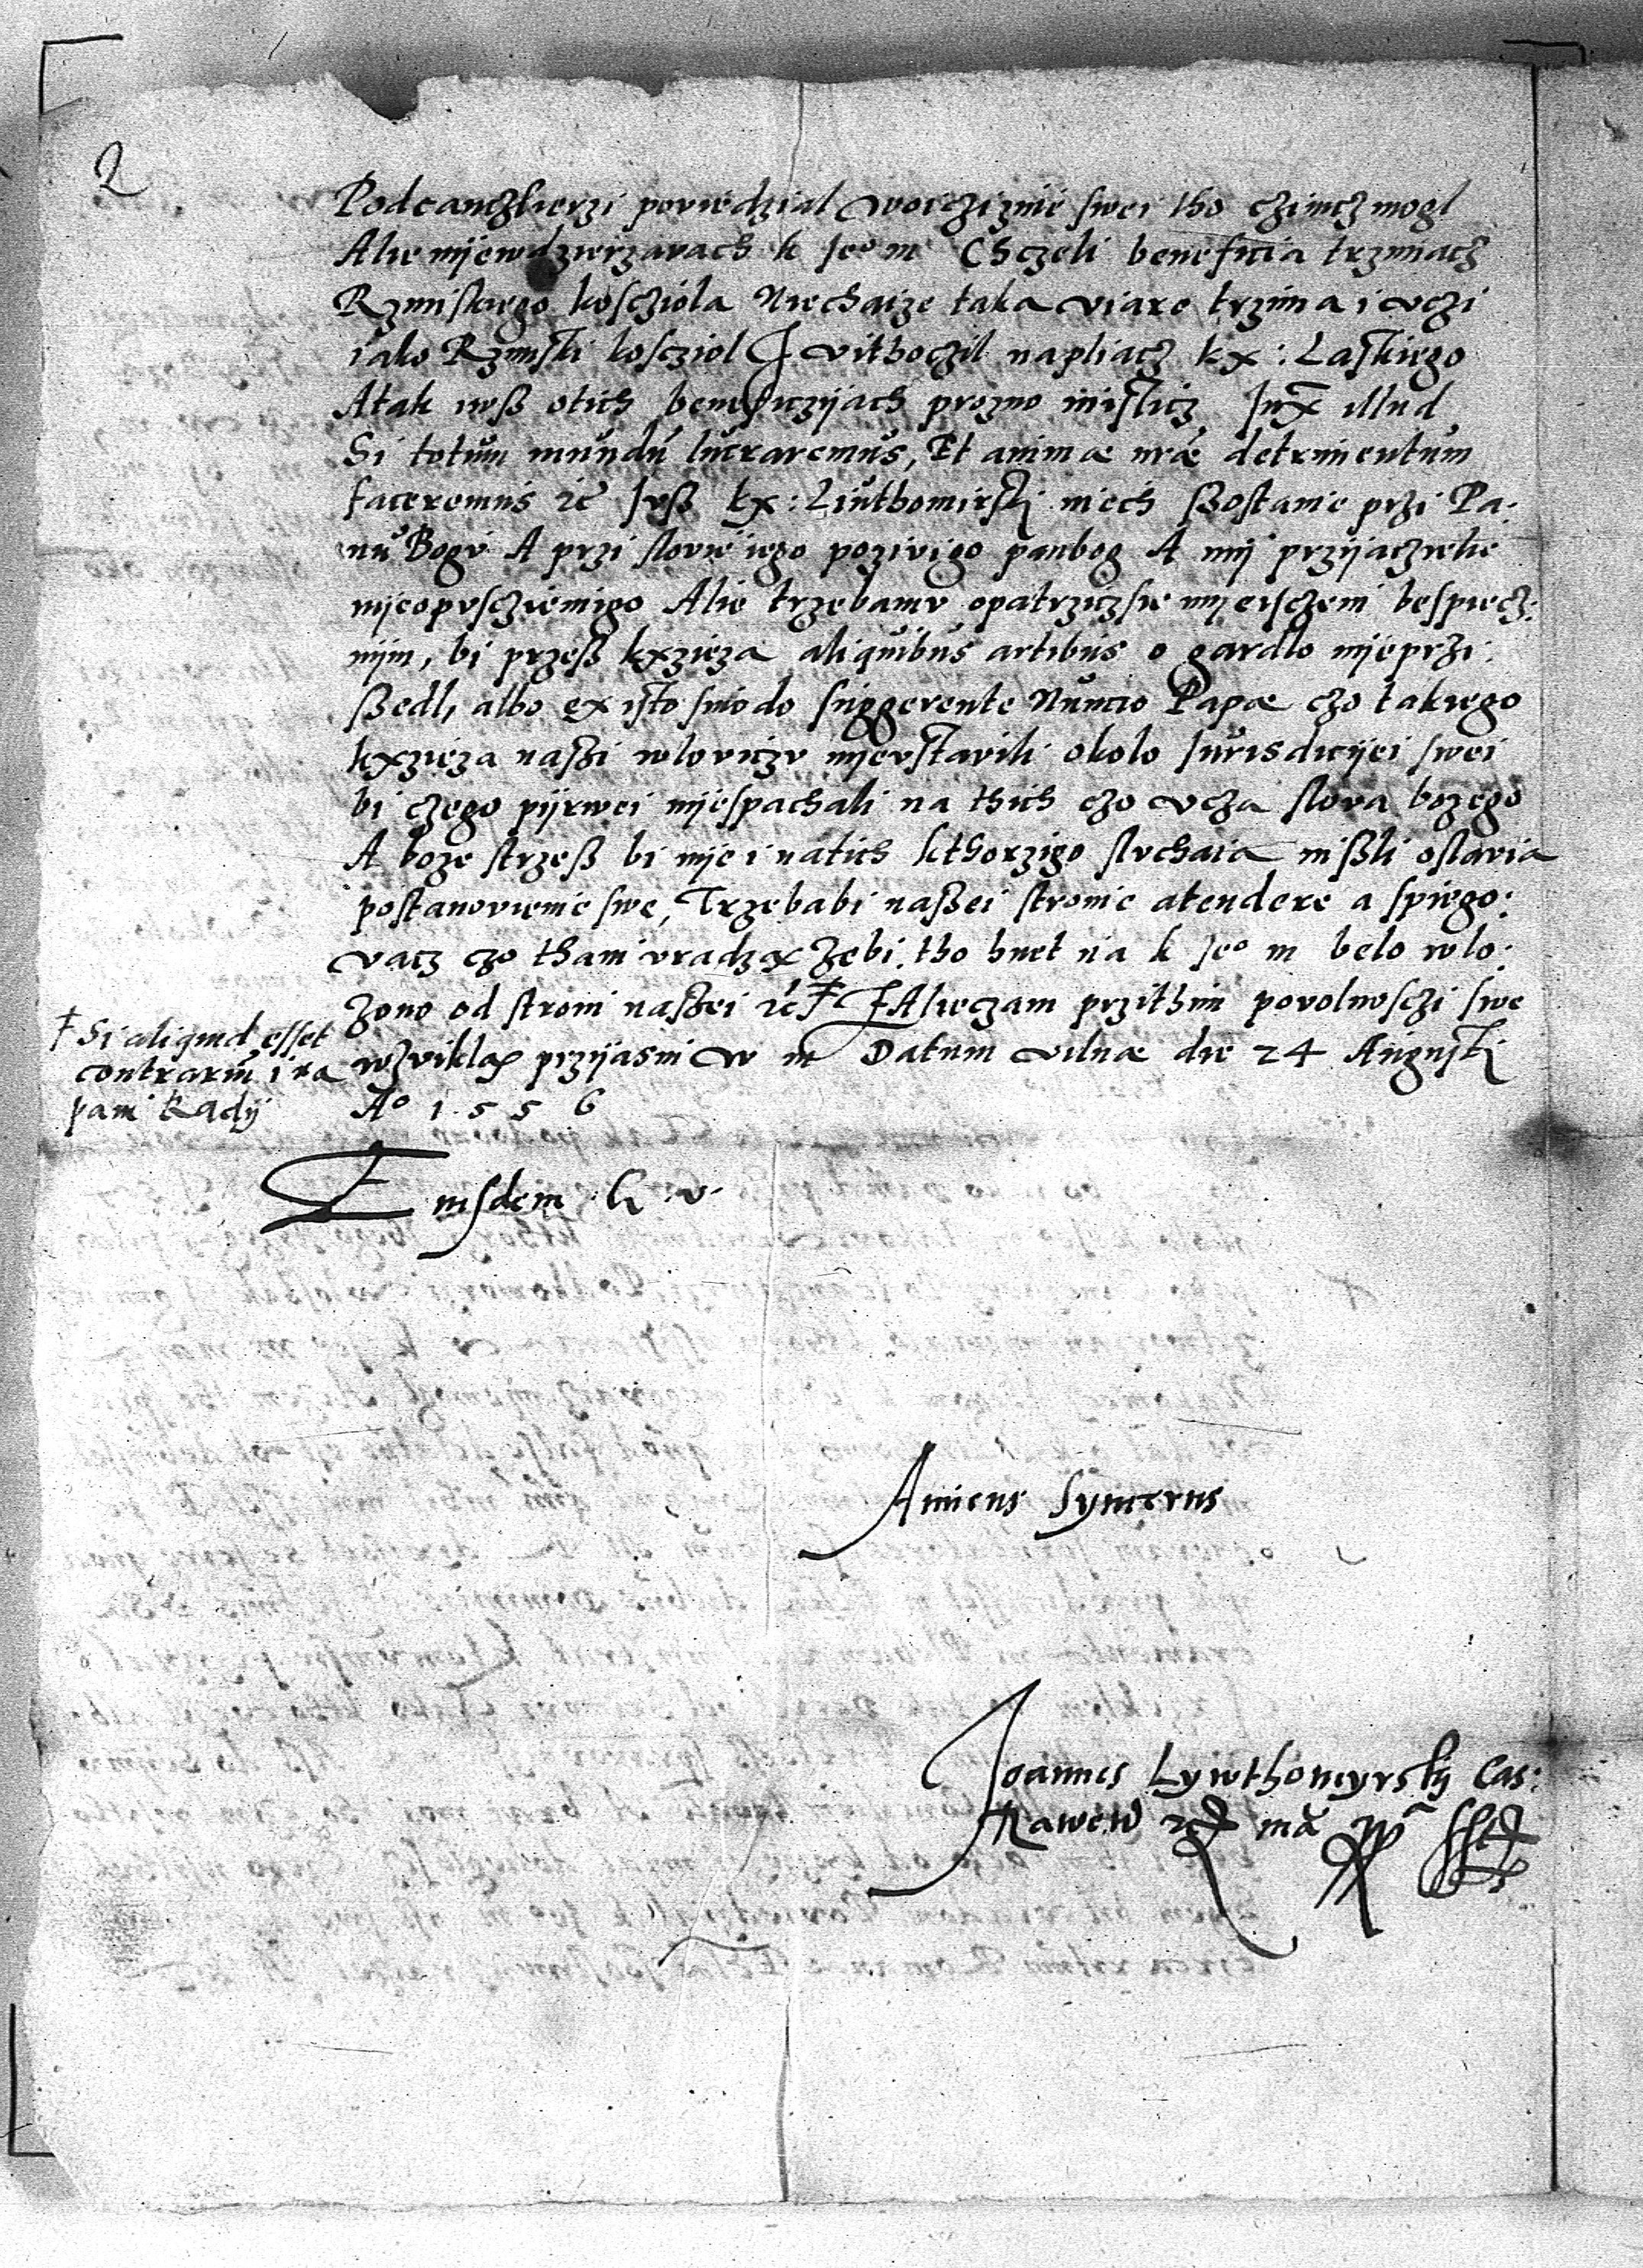 2
Podcanczlierzi poviedzial wocziznie swei tho czimcz mogl
Alie nijewdzierzavach k Je° m Chczeli beneficia trzimacz
Rzimskiego koscziola Niechaize taka viare trzima i vczi
iako Rzimski koscziol J vithoczil napliacz kx: Laskiego
Atak iusß otich beneficzijach prozno misslicz Juxª illud
Si totum mundū lucraremus, Et animæ nrǽ detrimentum
faceremus ić Jvß kx: Liuthomirski niech ßostanie przi Pa:
nu Bogv A przi slovie iego pozivigo panbog A mij przijacziele
nijeopvscziemigo Alie trzebamv opatrziczsie mijeisczem bespiecz:
nijm, bi przeß kxzieza aliquibus artibus o gardlo nijeprzi:
ßedl, albo ex isto sinodo suggerente Nuncio Papæ czo takiego
kxzieza naßzi wloviczv nijevstavili okolo Jurisdicijei swei
bi czego pijrwei nijespachali na thich czo vcza slova bozego
A boze strzeß bi nije i natich kthorzigo slvchaia mißli ostavia
postanovienie swe, Trzebabi naßei stronie atendere a spiego:
vacz czo tham vradzą Zebi tho hnet na k Je° m belo wlo:
zono od stroni naßei ić ‡ Zalieczam przithim povolnosczi swe
wzviklą przijasni w m Datum vilnæ die 24 Augusti
A° 1556
‡ Si aliquid esset
contrariū i na
pani Radij
Eiusdem G v
Amicus Syncerus
Joannes Lywthomyrskij Cas:
Rawen̄ mā pp̄ sst